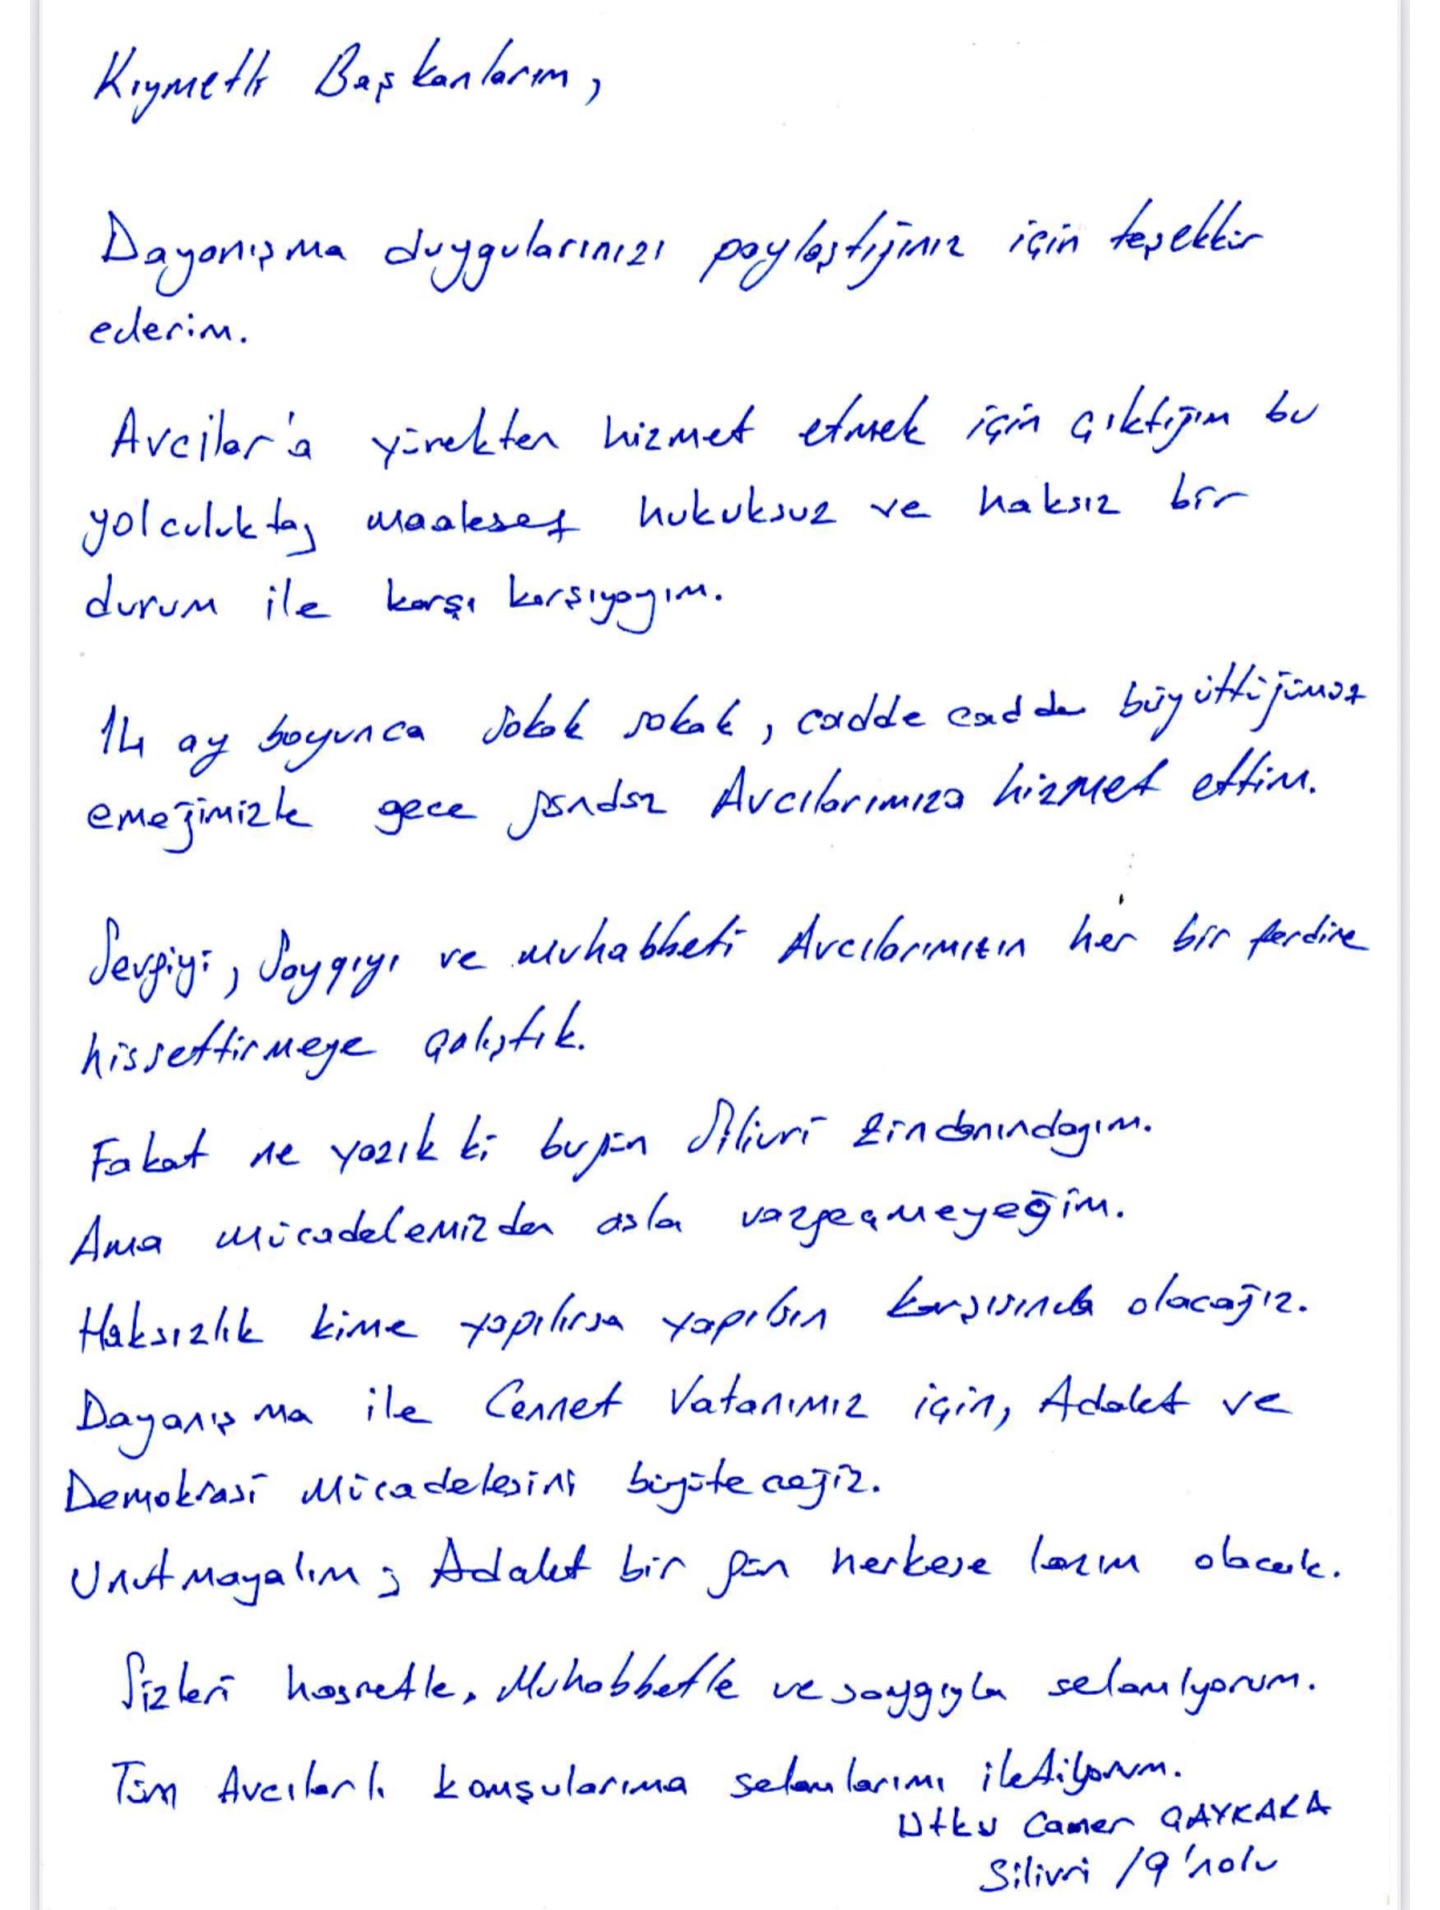 Kıymetli Başkanlarım,
Dayanışma duygularınızı paylaştığınız için teşekkür
ederim.
Avcılar'a yürekten hizmet etmek için çıktığım bu
yolculukta, maalesef hukuksuz ve haksız bir
durum ile karşı karşıyayım.
14 ay boyunca sokak sokak, cadde cadde büyüttüğümüz
emeğimizle gece gündüz Avcılarımıza hizmet ettim.
Sevgiyi, Saygıyı ve Muhabbeti Avcılarımızın her bir ferdine
hissettirmeye çalıştık.
Fakat ne yazık ki bugün Silivri zindanındayım.
Ama mücadelemizden asla vazgeçmeyeğim.
Haksızlık kime yapılırsa yapılsın karşısında olacağız.
Dayanışma ile Cennet Vatanımız için, Adalet ve
Demokrasi Mücadelesini büyüteceğiz.
Unutmayalım; Adalet bir gün herkese lazım olacak.
Sizleri hasretle, Muhabbetle ve saygıyla selamlıyorum.
Tüm Avcılarlı komşularıma selamlarımı iletiyorum.
Utku Caner ÇAYKARA
Silivri /9'nolu